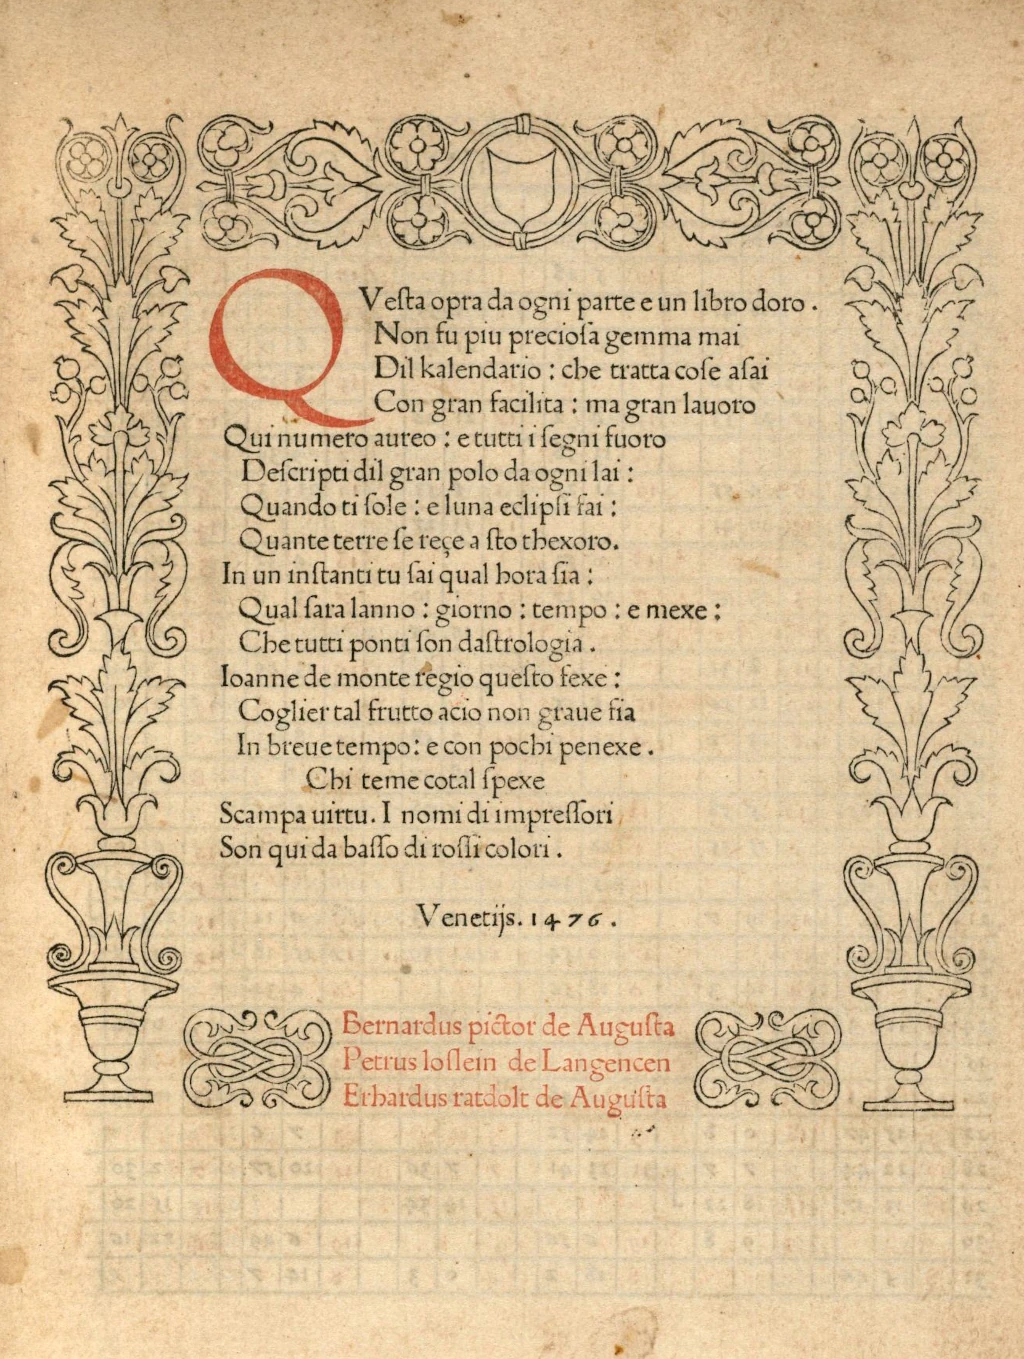 QVeſta opra da ogni parte e un libro doro .
Non fu piu precioſa gemma mai
Dil kalendario : che tratta coſe aſai
Con gran facilita : ma gran lauoro
Qui numero aureo : e tutti i ſegni fuoro
Deſcripti dil gran polo da ogni lai :
Quando ti ſole : e luna eclipſi fai :
Quante terre ſe reçe a ſto thexoro.
In un inſtanti tu ſai qual hora ſia :
Qual ſara lanno : giorno : tempo : e mexe :
Che tutti ponti ſon daſtrologia .
Ioanne de monte regio queſto fexe :
Coglier tal frutto acio non graue ſia
In breue tempo : e con pochi penexe .
Chi teme cotal ſpexe
Scampa uirtu. I nomi di impreſſori
Son qui da baſſo di roſſi colori .
Venetijs. 1476 .
Bernardus pictor de Auguſta
Petrus loſlein de Langencen
Erhardus ratdolt de Auguſta